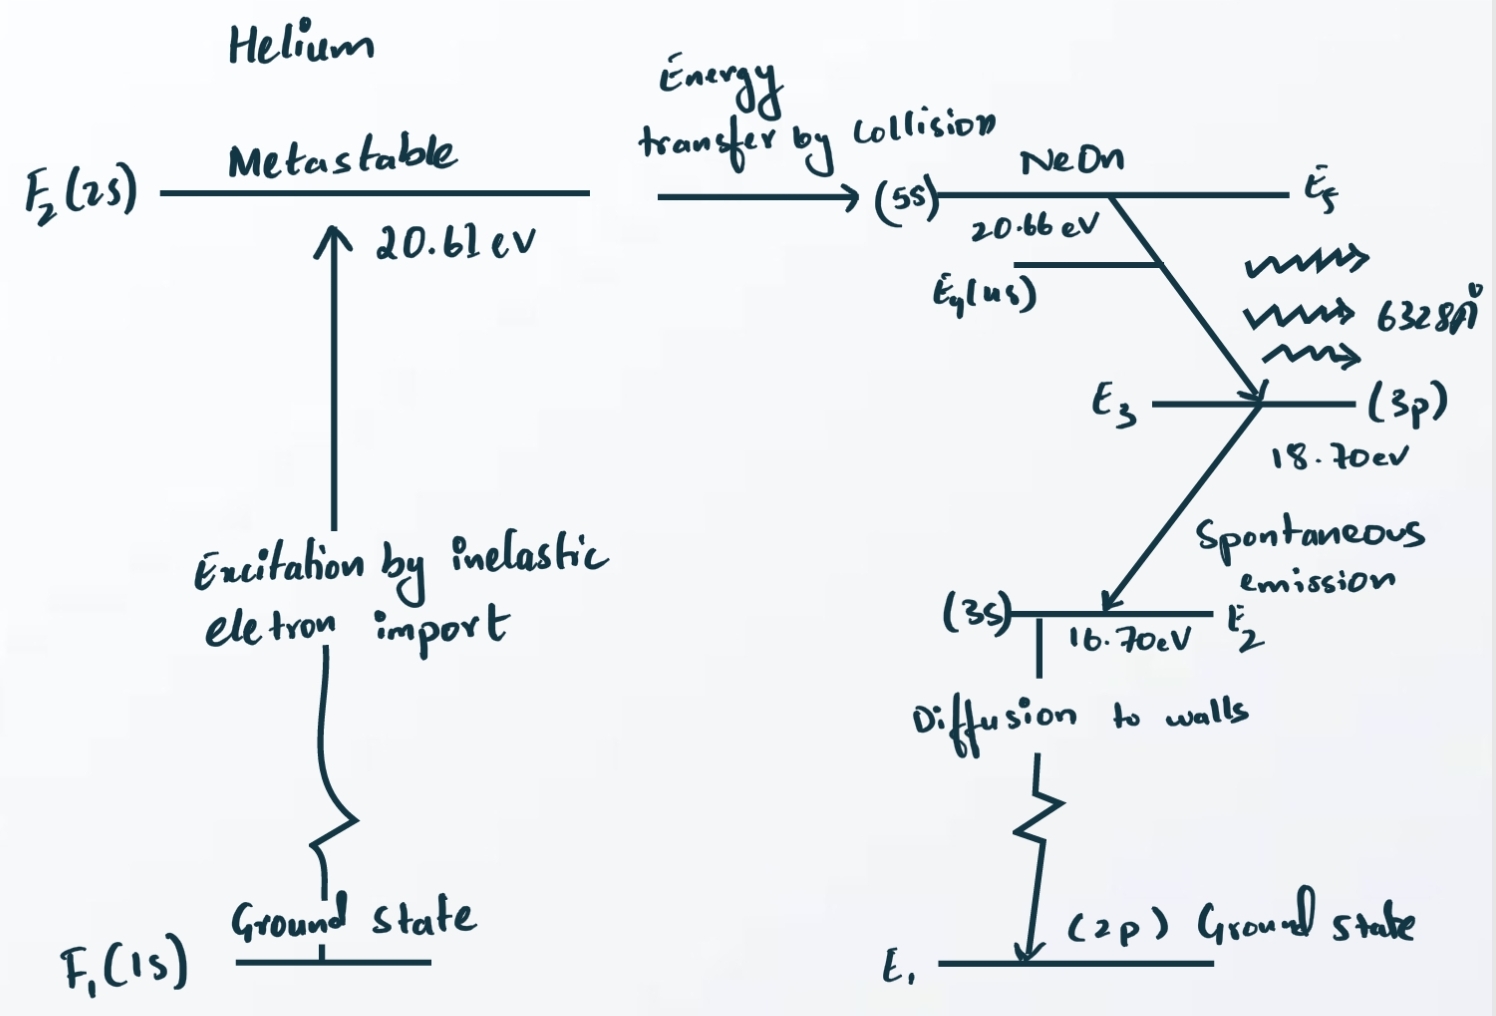 Helium
Metastable
F₂(2s)
20.61 eV
Excitation by inelastic
eletron import
Ground state
F₁(1s)
Energy
transfer by collision
Neon
(5s)
E₅
20.66 eV
E₄(4s)
6328Å
E₃
(3p)
18.70eV
Spontaneous
emission
(3s)
E₂
16.70eV
Diffusion to walls
(2p) Ground state
E₁